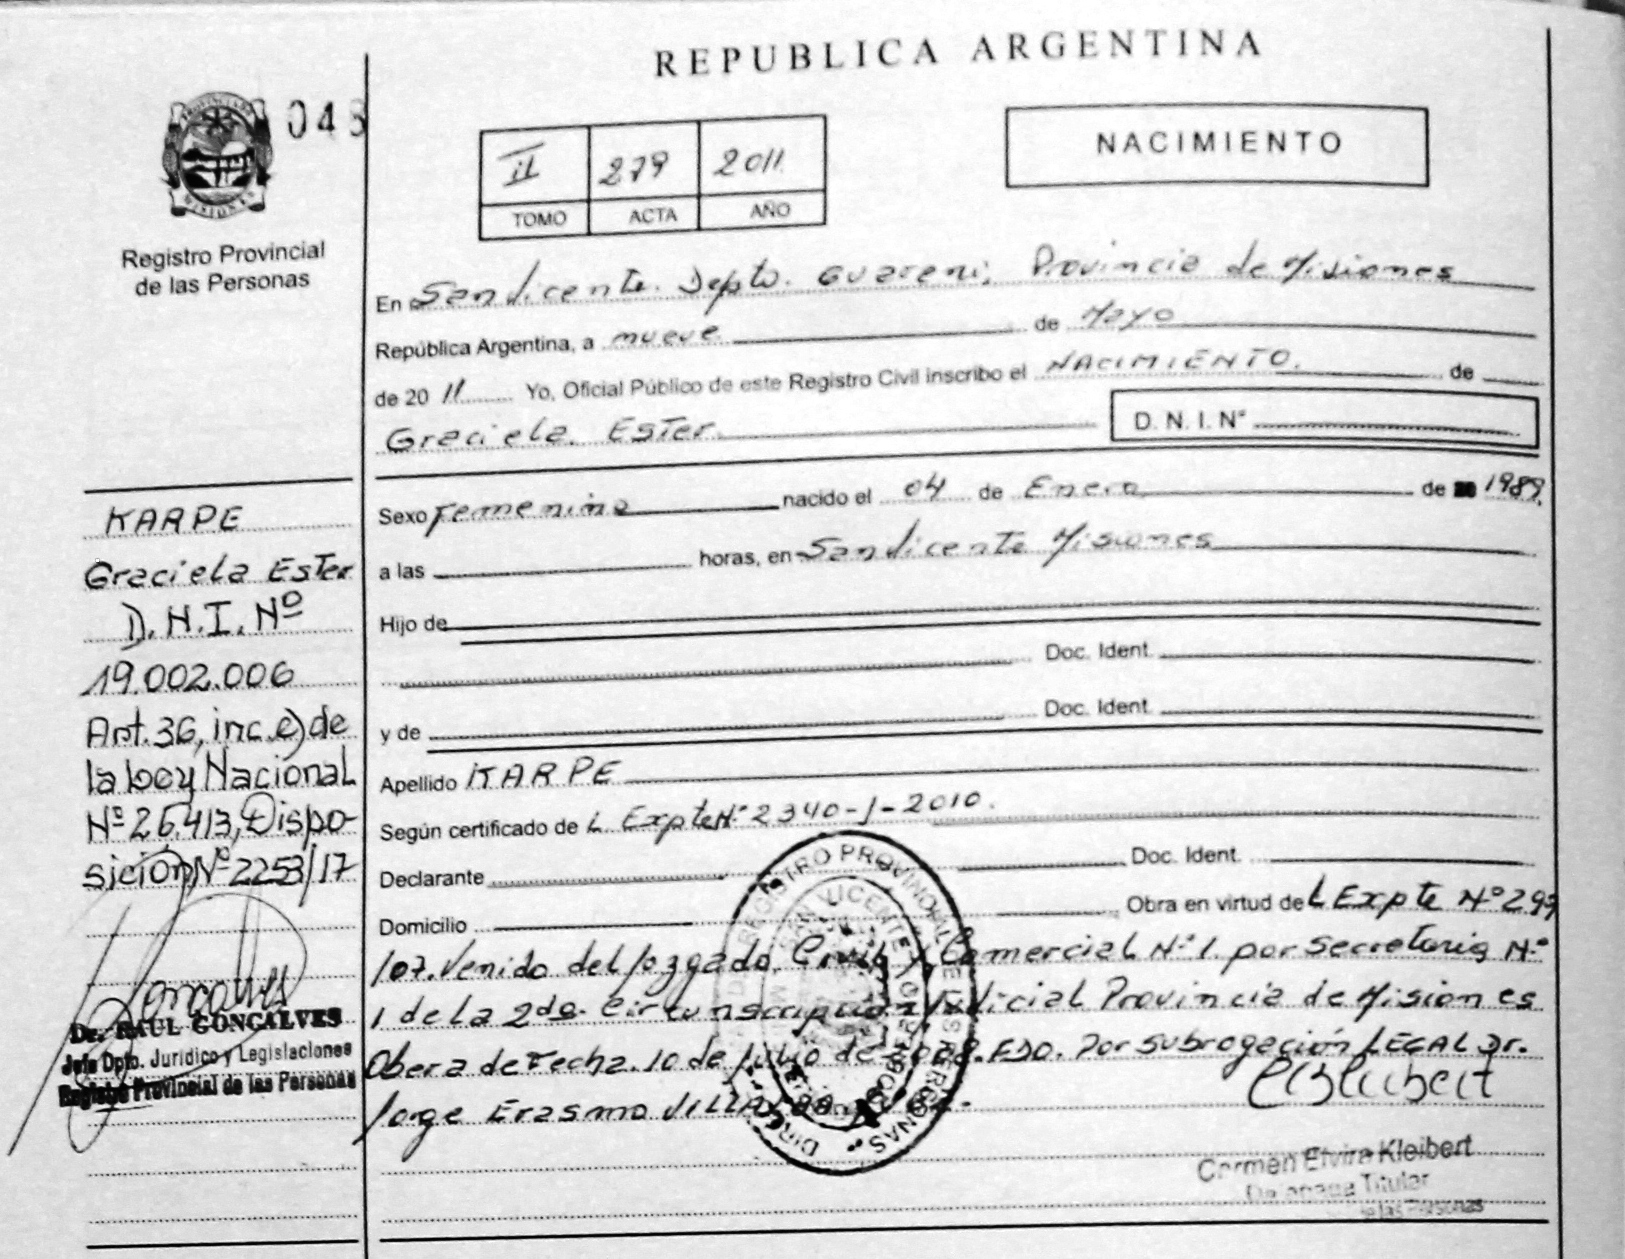 REPUBLICA ARGENTINA
PROVINCIA DE MISIONES
048
Registro Provincial
de las Personas
II 279 2011
TOMO ACTA AÑO
NACIMIENTO
En San Vicente. Depto. Guarani, Provincia de Misiones
República Argentina, a nueve de Mayo
de 20 11 Yo, Oficial Público de este Registro Civil inscribo el NACIMIENTO. de
Graciela Ester D. N. I. Nº
Sexo Femenino nacido el 04 de Enero de 1989.
a las horas, en San Vicente Misiones
Hijo de
Doc. Ident.
y de Doc. Ident.
Apellido KARPE
Según certificado de L Expte Nº 2340-J-2010.
Declarante Doc. Ident.
Domicilio Obra en virtud de L Expte Nº 299
107. Venido del Juzgado Civil y Comercial Nº 1. por Secretaria Nº
1 de la 2da. Circunscripción Judicial Provincia de Misiones
Obera de Fecha. 10 de Julio de 2008. FDO. Por subrogación LEGAL Dr.
Jorge Erasmo
Carmen Elvira Kleibert
Titular
de las Personas
REGISTRO PROVINCIAL DE LAS PERSONAS
SAN VICENTE
KARPE
Graciela Ester
D.N.I. Nº
19.002.006
Art. 36, inc. e) de
la Ley Nacional
Nº 26.413, Dispo-
sición Nº 2253/17
Dr. RAUL GONCALVES
Jefe Dpto. Jurídico y Legislaciones
Registro Provincial de las Personas